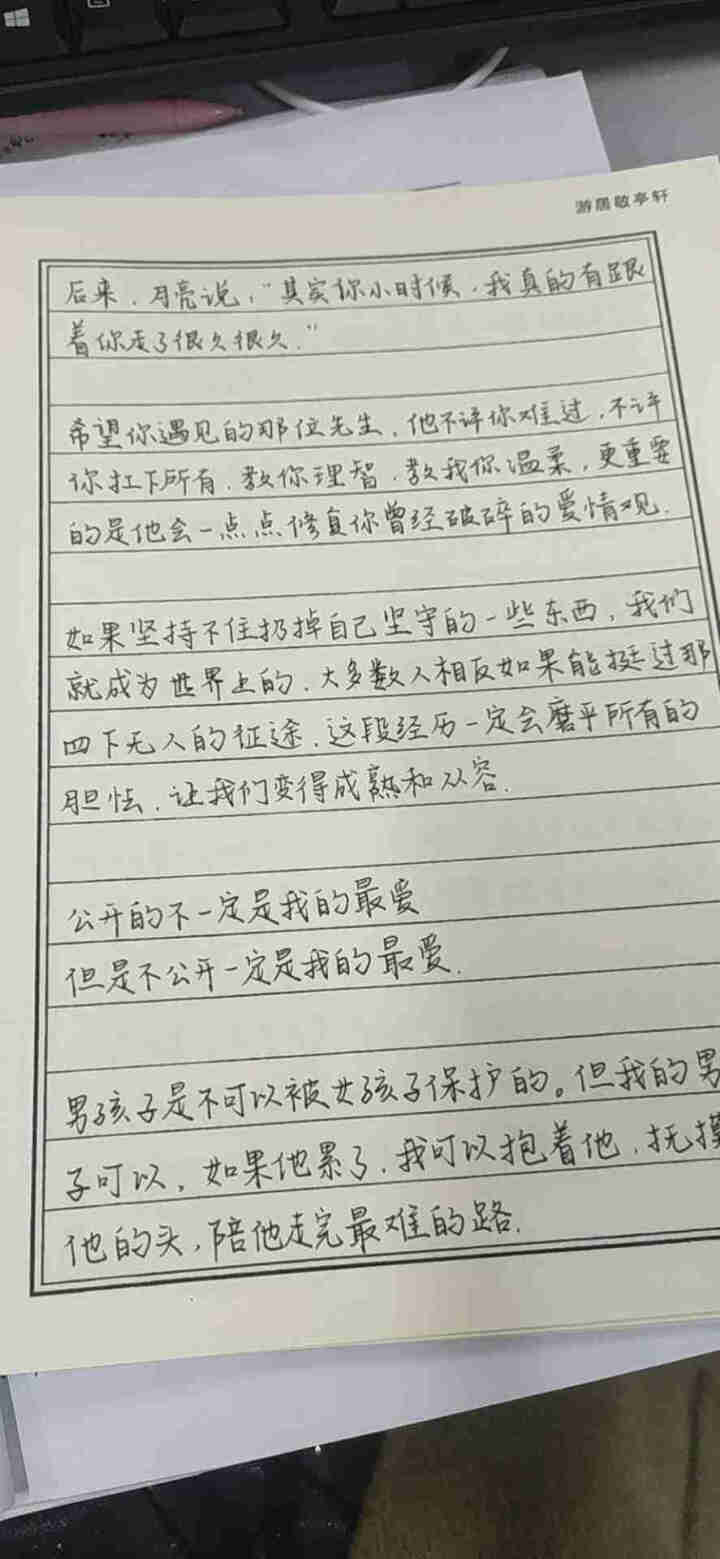 游居敬亭轩
后来，月亮说，“其实你小时候，我真的有跟
着你走了很久很久.”
希望你遇见的那位先生，他不许你难过，不许
你扛下所有，教你理智，教我你温柔，更重要
的是他会一点点修复你曾经破碎的爱情观.
如果坚持不住扔掉自己坚守的一些东西，我们
就成为世界上的，大多数人相反如果能挺过那
四下无人的征途，这段经历一定会磨平所有的
胆怯，让我们变得成熟和从容.
公开的不一定是我的最爱
但是不公开一定是我的最爱.
男孩子是不可以被女孩子保护的。但我的男
子可以，如果他累了，我可以抱着他，抚摸
他的头，陪他走完最难的路.